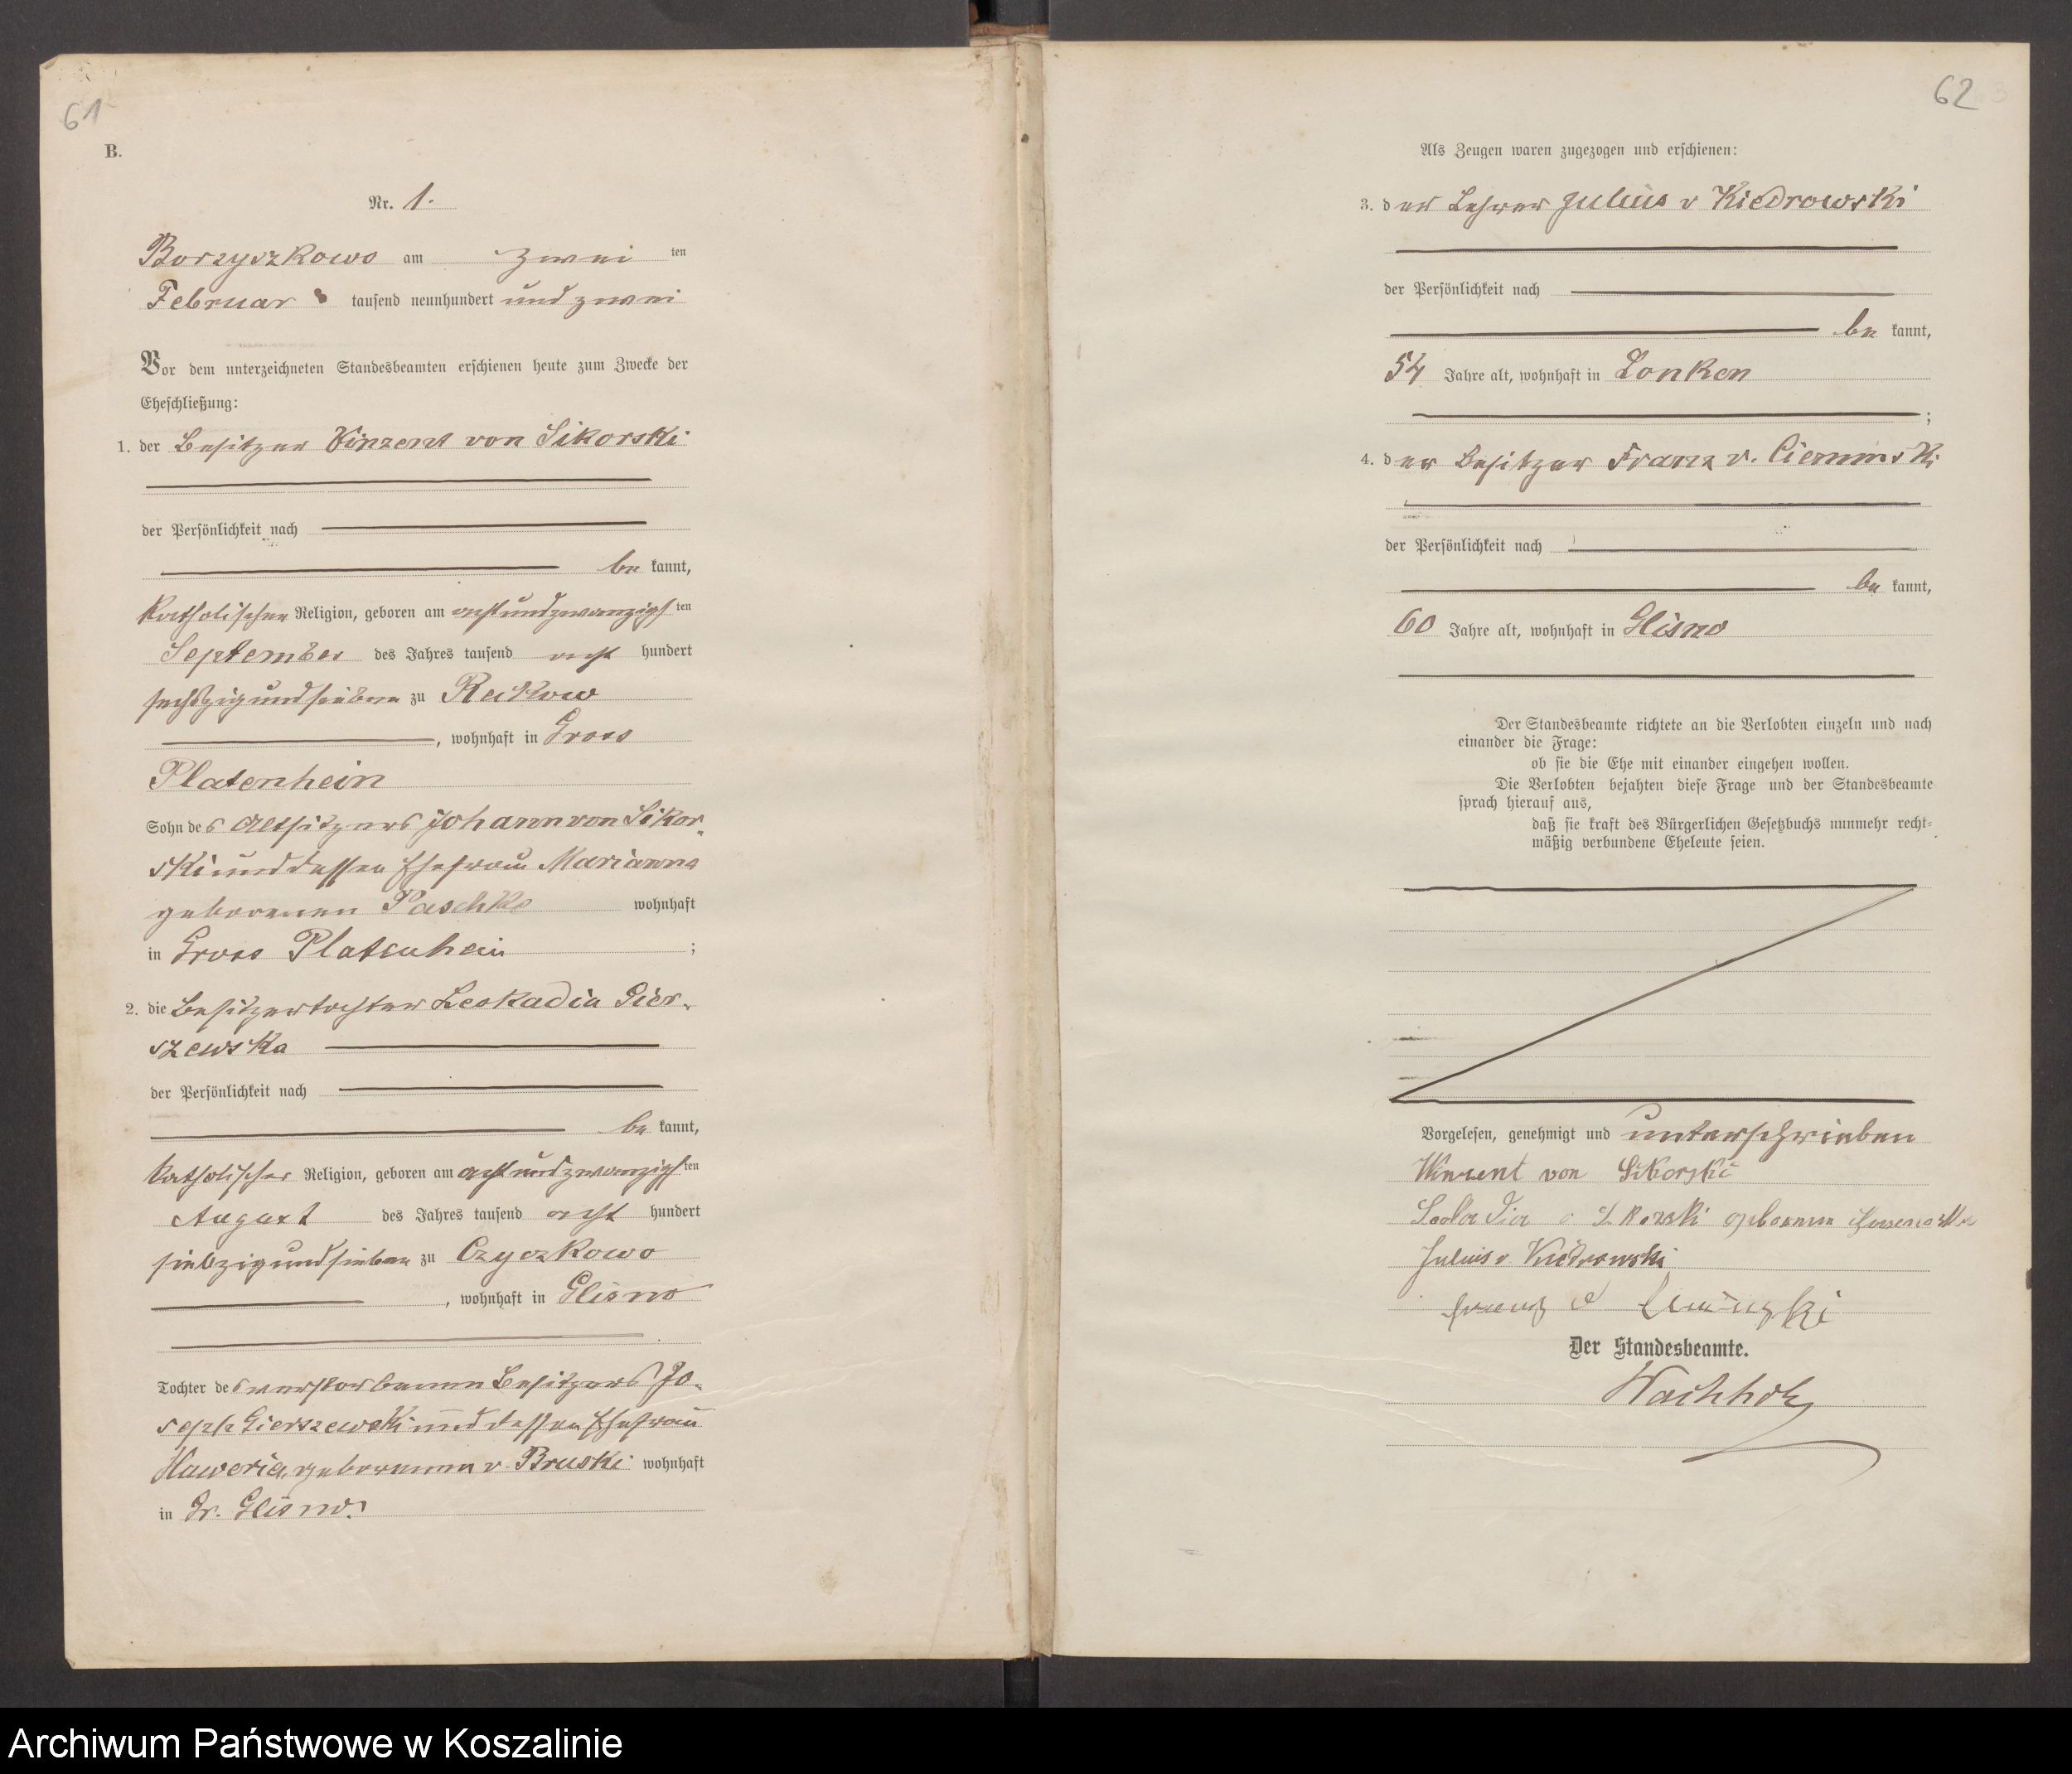 61
B.
Nr. 1.
Borzyszkowo am zwei ten
Februar tausend neunhundert und zwei
Vor dem unterzeichneten Standesbeamten erschienen heute zum Zwecke der
Eheschließung:
1. der Besitzer Vinzent von Sikorski
der Persönlichkeit nach
be kannt,
katholischer Religion, geboren am achtundzwanzigsten
September des Jahres tausend acht hundert
sechszigundsieben zu Reckow
, wohnhaft in Gross
Platenhein
Sohn des Altsitzers Johann von Sikor-
ski und dessen Ehefrau Marianna
geborenen Paschke wohnhaft
in Gross Platenhein ;
2. die Besitzertochter Leokadia Gier-
szewska
der Persönlichkeit nach
be kannt,
katholischer Religion, geboren am achtundzwanzigsten
August des Jahres tausend acht hundert
siebzigundsieben zu Czyczkowo
, wohnhaft in Glisno
Tochter des verstorbenen Besitzers Jo-
seph Gierszewski und dessen Ehefrau
geborenen v. Bruski wohnhaft
in Gr. Glisno.
62
Als Zeugen waren zugezogen und erschienen:
3. der Lehrer Julius v Kiedrowski
der Persönlichkeit nach
be kannt,
54 Jahre alt, wohnhaft in Lonken
;
4. der Besitzer Franz v. Cieminski
der Persönlichkeit nach
be kannt,
60 Jahre alt, wohnhaft in Glisno
Der Standesbeamte richtete an die Verlobten einzeln und nach
einander die Frage:
ob sie die Ehe mit einander eingehen wollen.
Die Verlobten bejahten diese Frage und der Standesbeamte
sprach hierauf aus,
daß sie kraft des Bürgerlichen Gesetzbuchs nunmehr recht-
mäßig verbundene Eheleute seien.
Vorgelesen, genehmigt und unterschrieben
Vinzent von Sikorski
geborene
Julius v Kiedrowski
Franz v Cieminski
Der Standesbeamte.
Wachholz
Archiwum Państwowe w Koszalinie